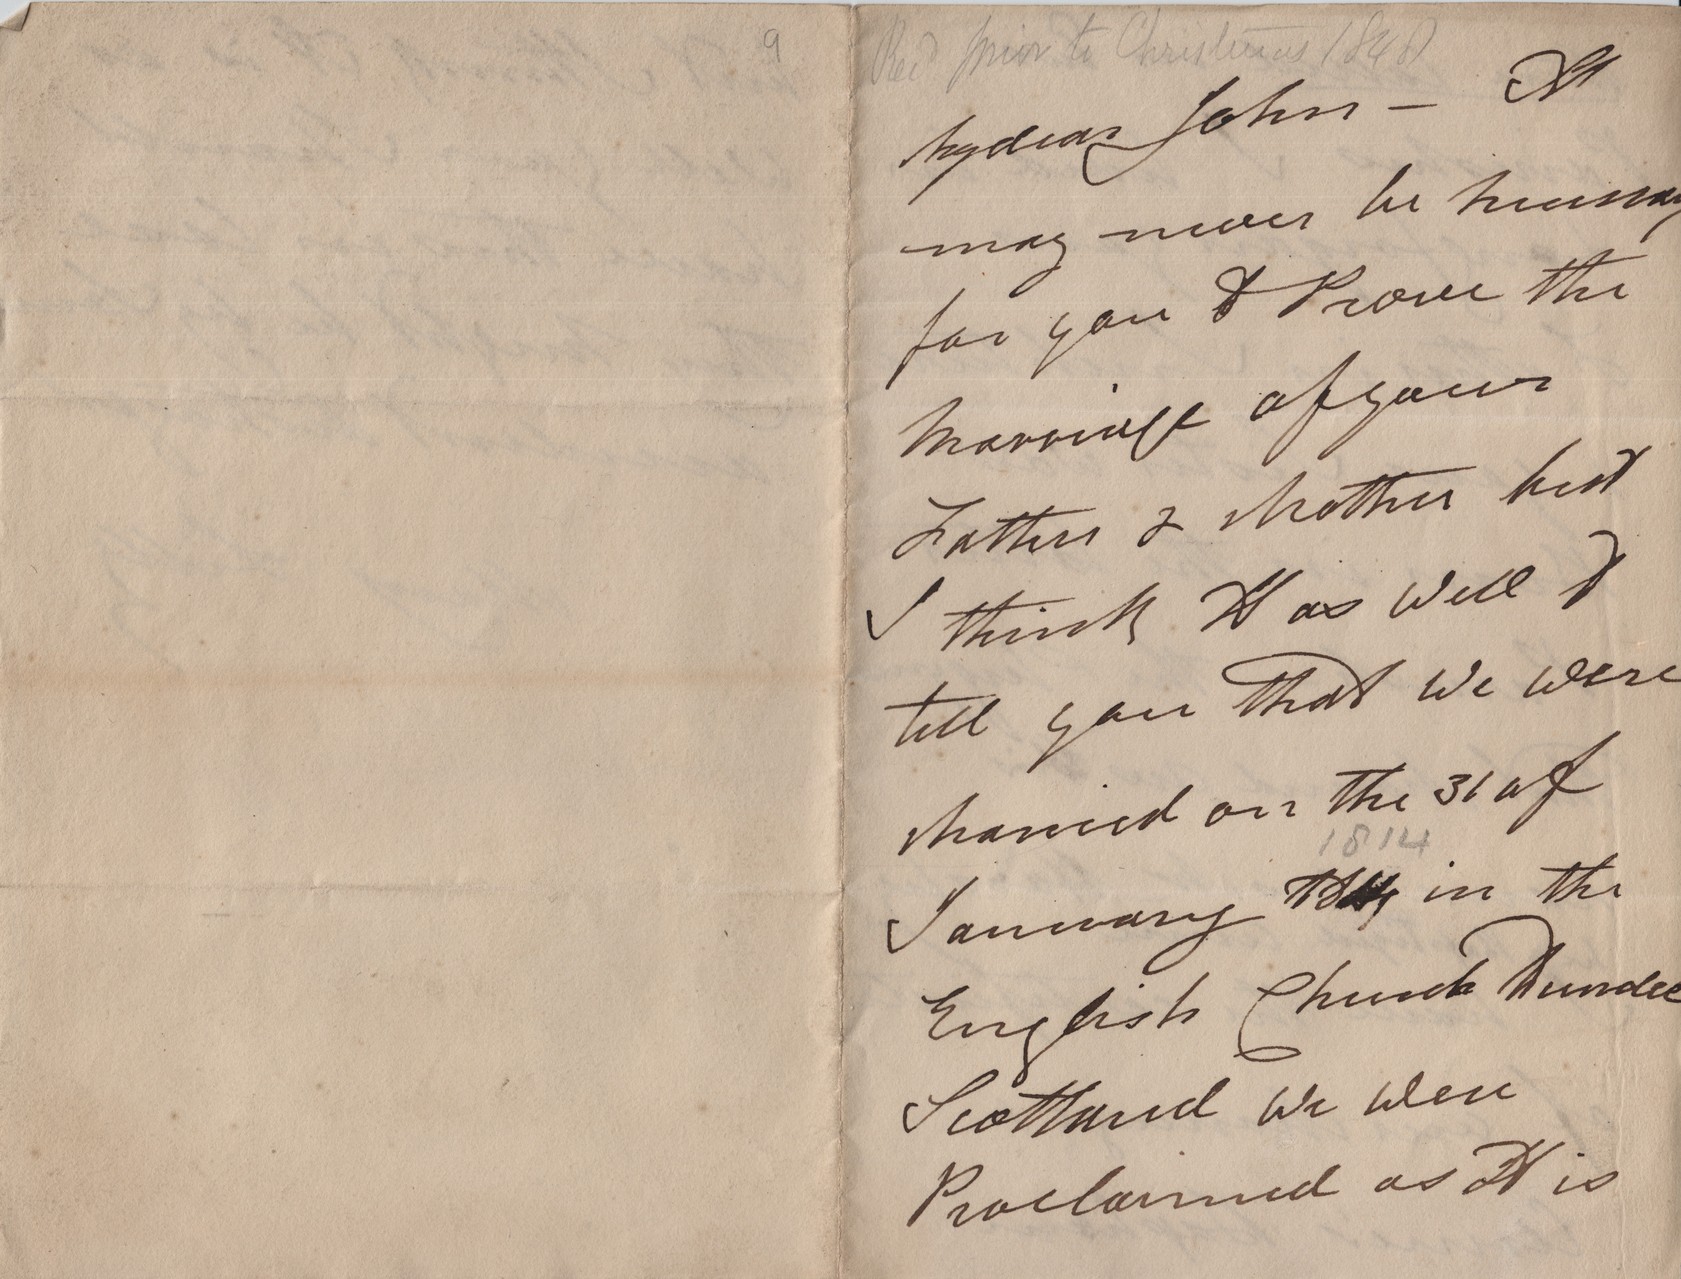 9
Rec'd prior to Christmas 1848
My dear John – It
may never be necessary
for you to Prove the
Marriage of your
Father & Mother but
I think It as well to
tell you that we were
Married on the 31 of
1814
January in the
English Church Dundee
Scotland we were
Proclaimed as It is